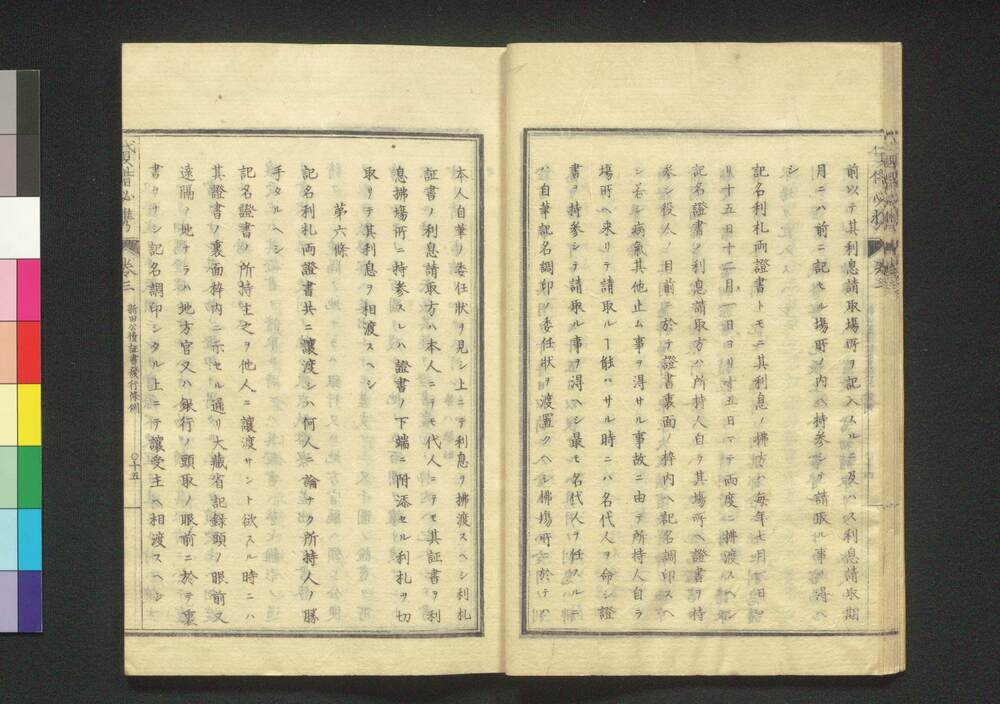 前以テ其利息請取場所ヲ記入スルニ及ハス利息請取期
月ニハ前ニ記セル場所ノ内ヘ持参シテ請取ル事ヲ得ヘ
シ
記名利札両證書トモニ其利息ノ拂方ハ毎年七月一日ヨ
リ十五日十二月一日ヨリ十五日マテ両度ニ拂渡スヘシ
記名證書ノ利息請取方ハ所持人自ラ其場所ヘ證書ヲ持
参シ役人ノ目前ニ於テ證書裏面ノ枠内ヘ記名調印スヘ
シ若シ病氣其他止ム事ヲ得サル事故ニ由テ所持人自ラ
場所ヘ来リテ請取ルヿ能ハサル時ニハ名代人ヲ命シ證
書ヲ持参シテ請取ル事ヲ得ヘシ最モ名代人ヲ任スルニ
ハ自筆記名調印ノ委任状ヲ渡置クヘシ拂場所ニ於テハ
本人自筆ノ委任状ヲ見シ上ニテ利息ヲ拂渡スヘシ利札
証書ノ利息請取方ハ本人ニテモ代人ニテモ其証書ヲ利
息拂場所ニ持参スレハ證書ノ下端ニ附添セル利札ヲ切
取リテ其利息ヲ相渡スヘシ
第六條
記名利札両證書共ニ讓渡シハ何人ニ論ナク所持人ノ勝
手タルヘシ
記名證書ノ所持主之ヲ他人ニ讓渡サント欲スル時ニハ
其證書ノ裏面枠内ニ示セル通リ大藏省記録頭ノ眼前又
遠隔ノ地ナラハ地方官又ハ銀行ノ頭取ノ眼前ニ於テ裏
書ヲナシ記名調印シタル上ニテ讓受主ヘ相渡スヘシ
卷三
新旧公債証書發行條例
〇十五